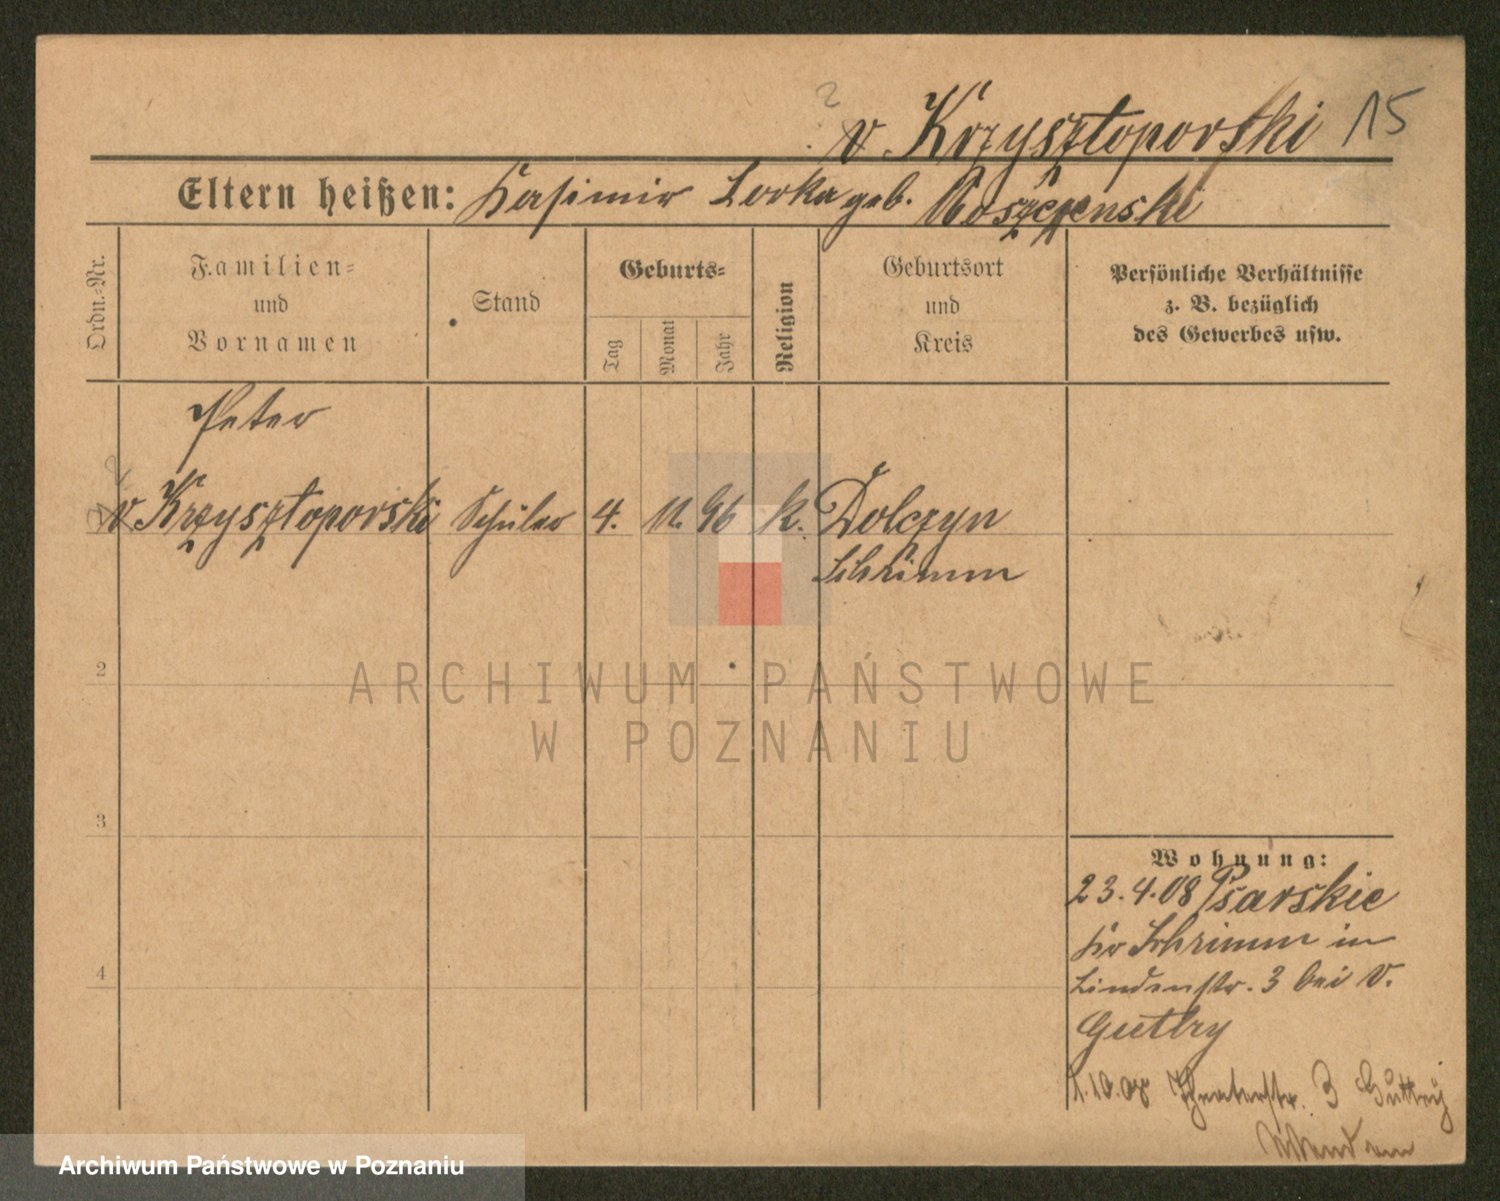 ? v. Krzysztoporski 15
Eltern heißen: Kasimir Lorka geb. Roszczenski
Ordn.-Nr.
Familien-
und
Vornamen
Stand
Geburts-
Tag
Monat
Jahr
Religion
Geburtsort
und
Kreis
Persönliche Verhältnisse
z. B. bezüglich
des Gewerbes usw.
Peter
v. Krzysztoporski Schüler 4. 11. 96 k. Dolczyn
Schrimm
ARCHIWUM PAŃSTWOWE
W POZNANIU
2
3
4
Wohnung:
23.4.08 Psarskie
Kr Schrimm in
Lindenstr. 3 bei v.
Guttry
1.10.08 Theaterstr. 3 Guttry
Archiwum Państwowe w Poznaniu